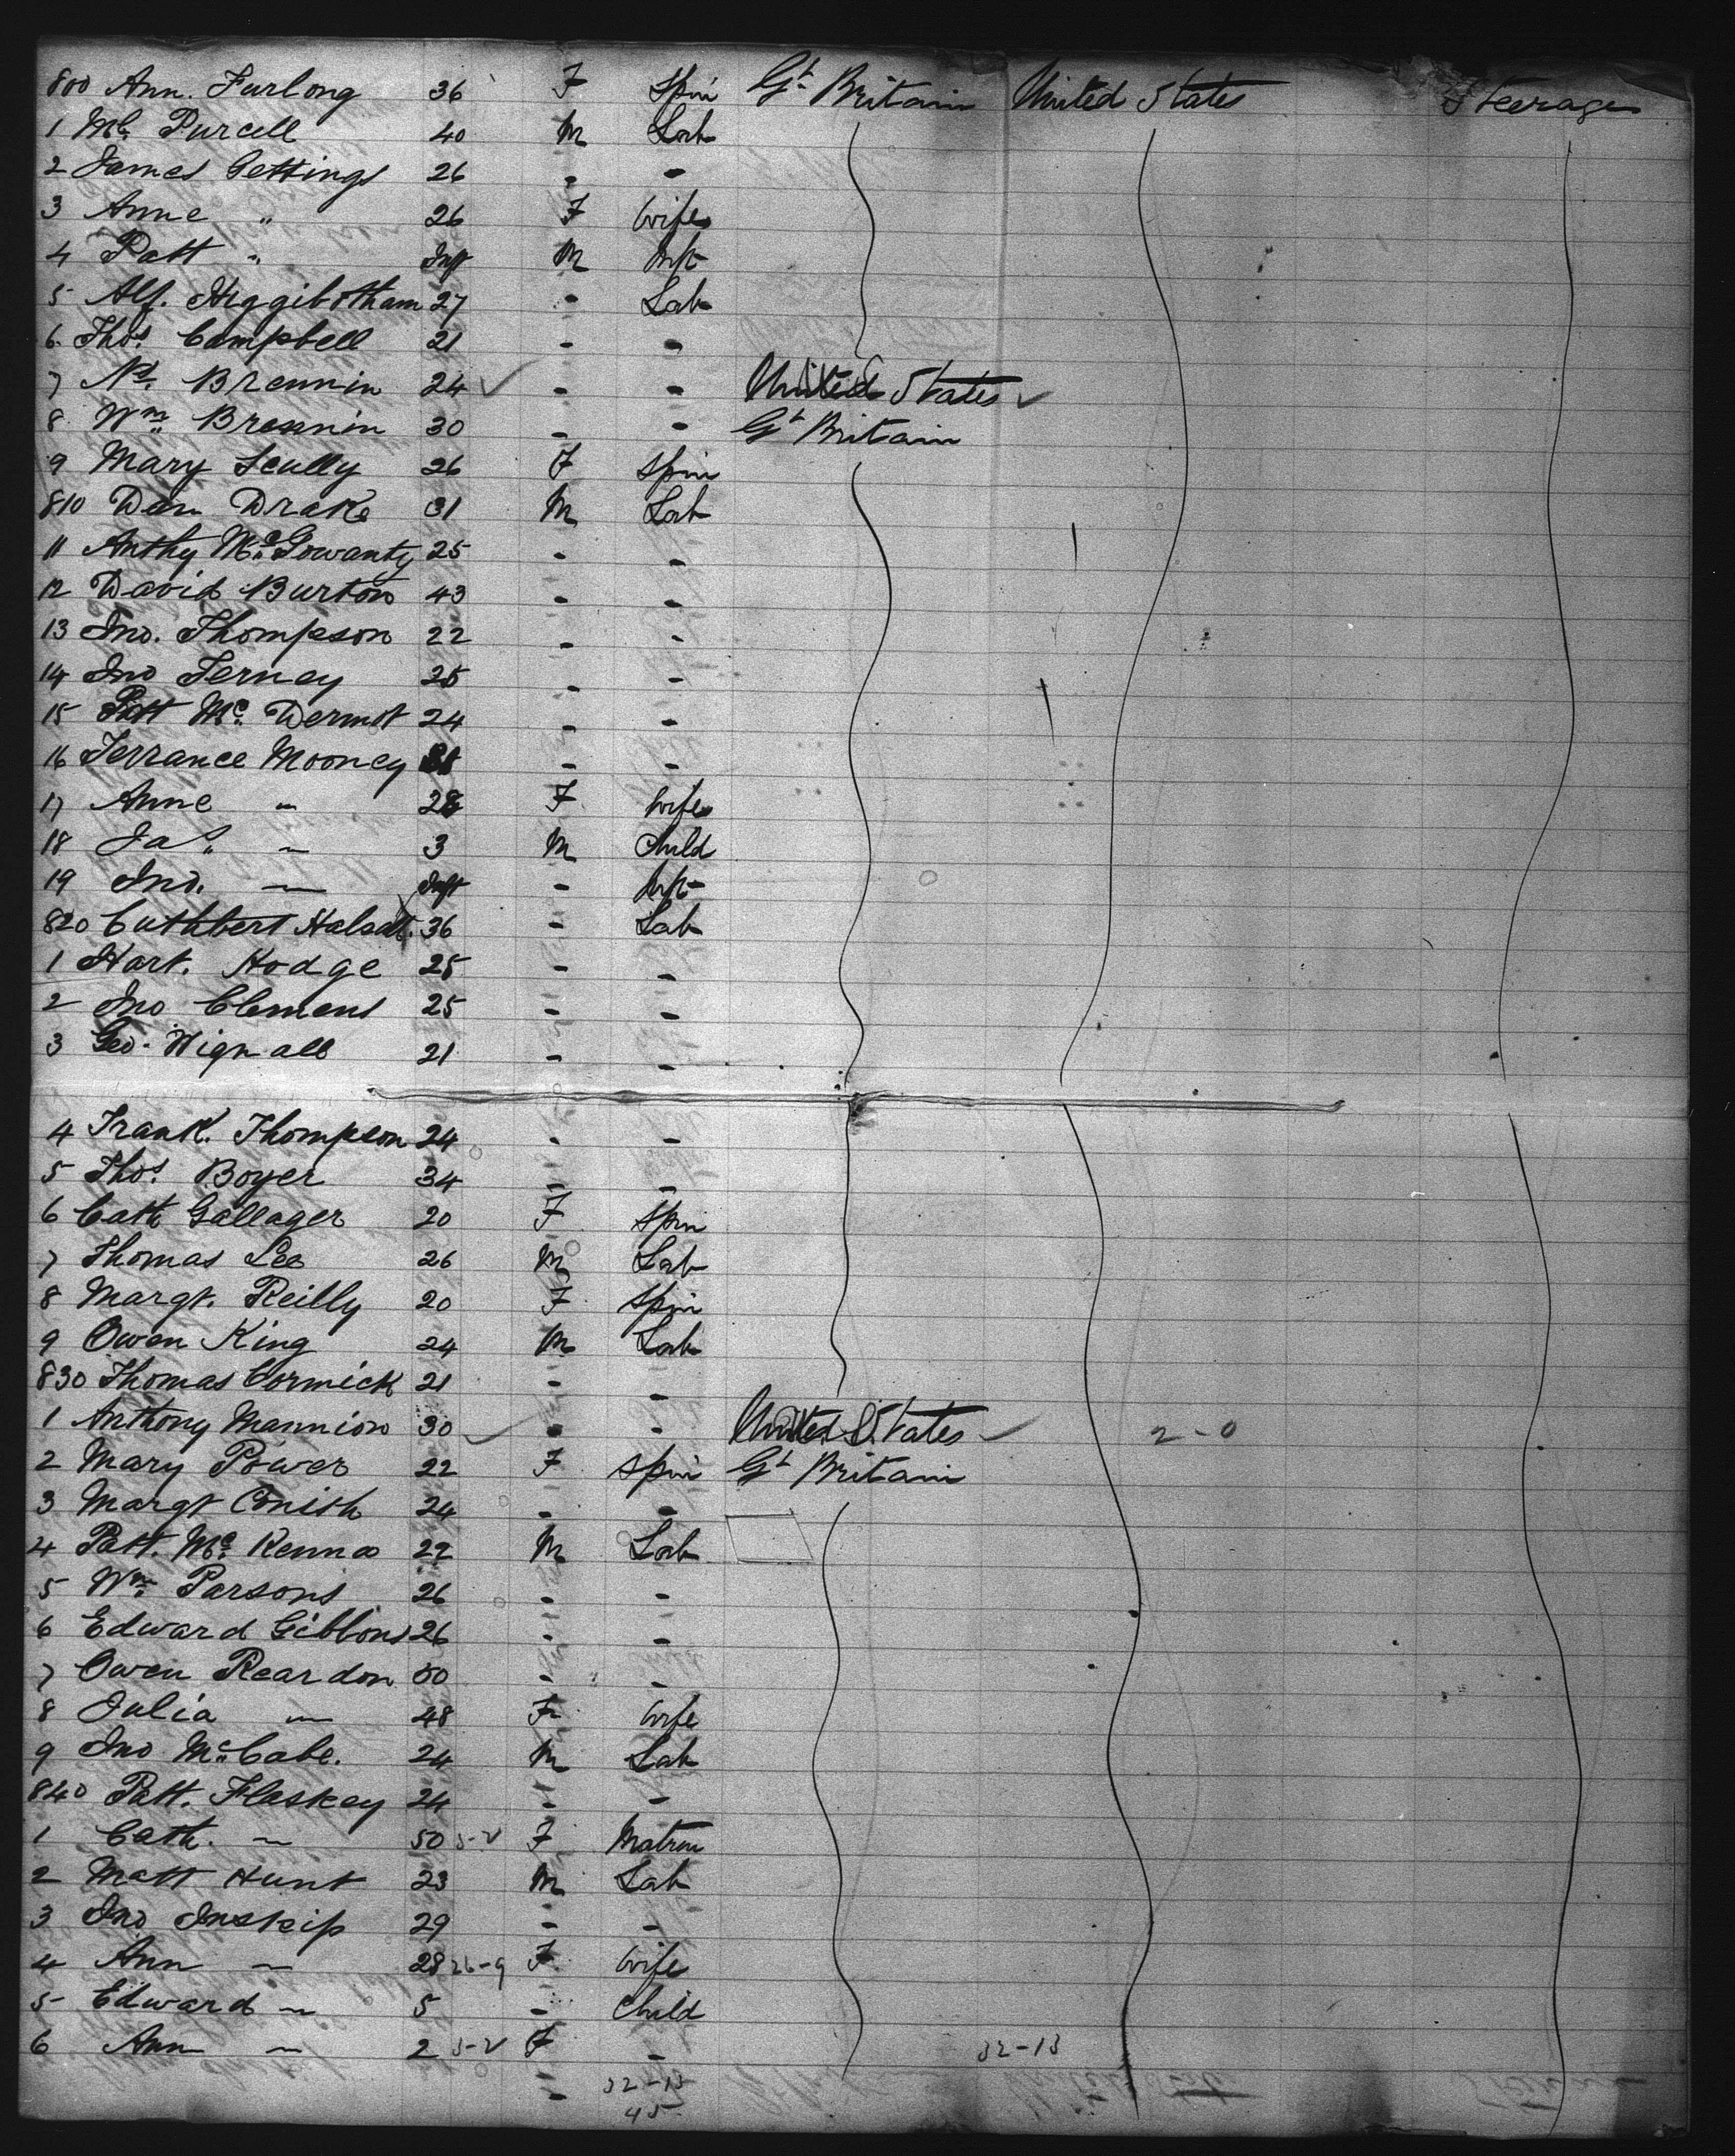 800 Ann. Furlong 36 F Spin Gt Britain United States Steerage
1 Ml. Purcell 40 M Lab
2 James Gettings 26 - -
3 Anne " 26 F Wife
4 Patt " Inft M Inft
5 Alf. Higgibotham 27 - Lab
6 Thos. Campbell 21 - -
7 Nd. Brennin 24 - - United States
8 Wm Brennin 30 - - Gt Britain
9 Mary Scully 26 F Spin
810 Dan Drake 31 M Lab
11 Anthy McGowanty 25 - -
12 David Burton 43 - -
13 Jno. Thompson 22 - -
14 Jno Terney 25 - -
15 Patt Mc. Dermot 24 - -
16 Terrance Mooney - -
17 Anne " 28 F Wife
18 Jas. " 3 M Child
19 Jno. " Inft - Inft
820 Cuthbert 36 - Lab
1 Hart. Hodge 25 - -
2 Jno Clemens 25 - -
3 Geo. Wignall 21 - -
4 Frank. Thompson 24 - -
5 Thos. Boyer 34 - -
6 Cath Gallager 20 F Spin
7 Thomas Lee 26 M Lab
8 Margt. Reilly 20 F Spin
9 Owen King 24 M Lab
830 Thomas Cormick 21 - -
1 Anthony Mannion 30 - - United States 2-0
2 Mary Power 22 F Spin Gt Britain
3 Margt Conish 24 - -
4 Patt. Mc. Kenna 22 M Lab
5 Wm Parsons 26 - -
6 Edward Gibbons 26 - -
7 Owen Reardon 50 - -
8 Julia " 48 F Wife
9 Jno McCabe. 24 M Lab
840 Patt. Flaskey 24 - -
1 Cath. " 50 5-2 F Matron
2 Matt Hunt 23 M Lab
3 Jno Inskip 29 - -
4 Ann " 28 26-9 F Wife
5 Edward " 5 - Child
6 Ann " 2 5-2 F - 32-13
- 32-13
45